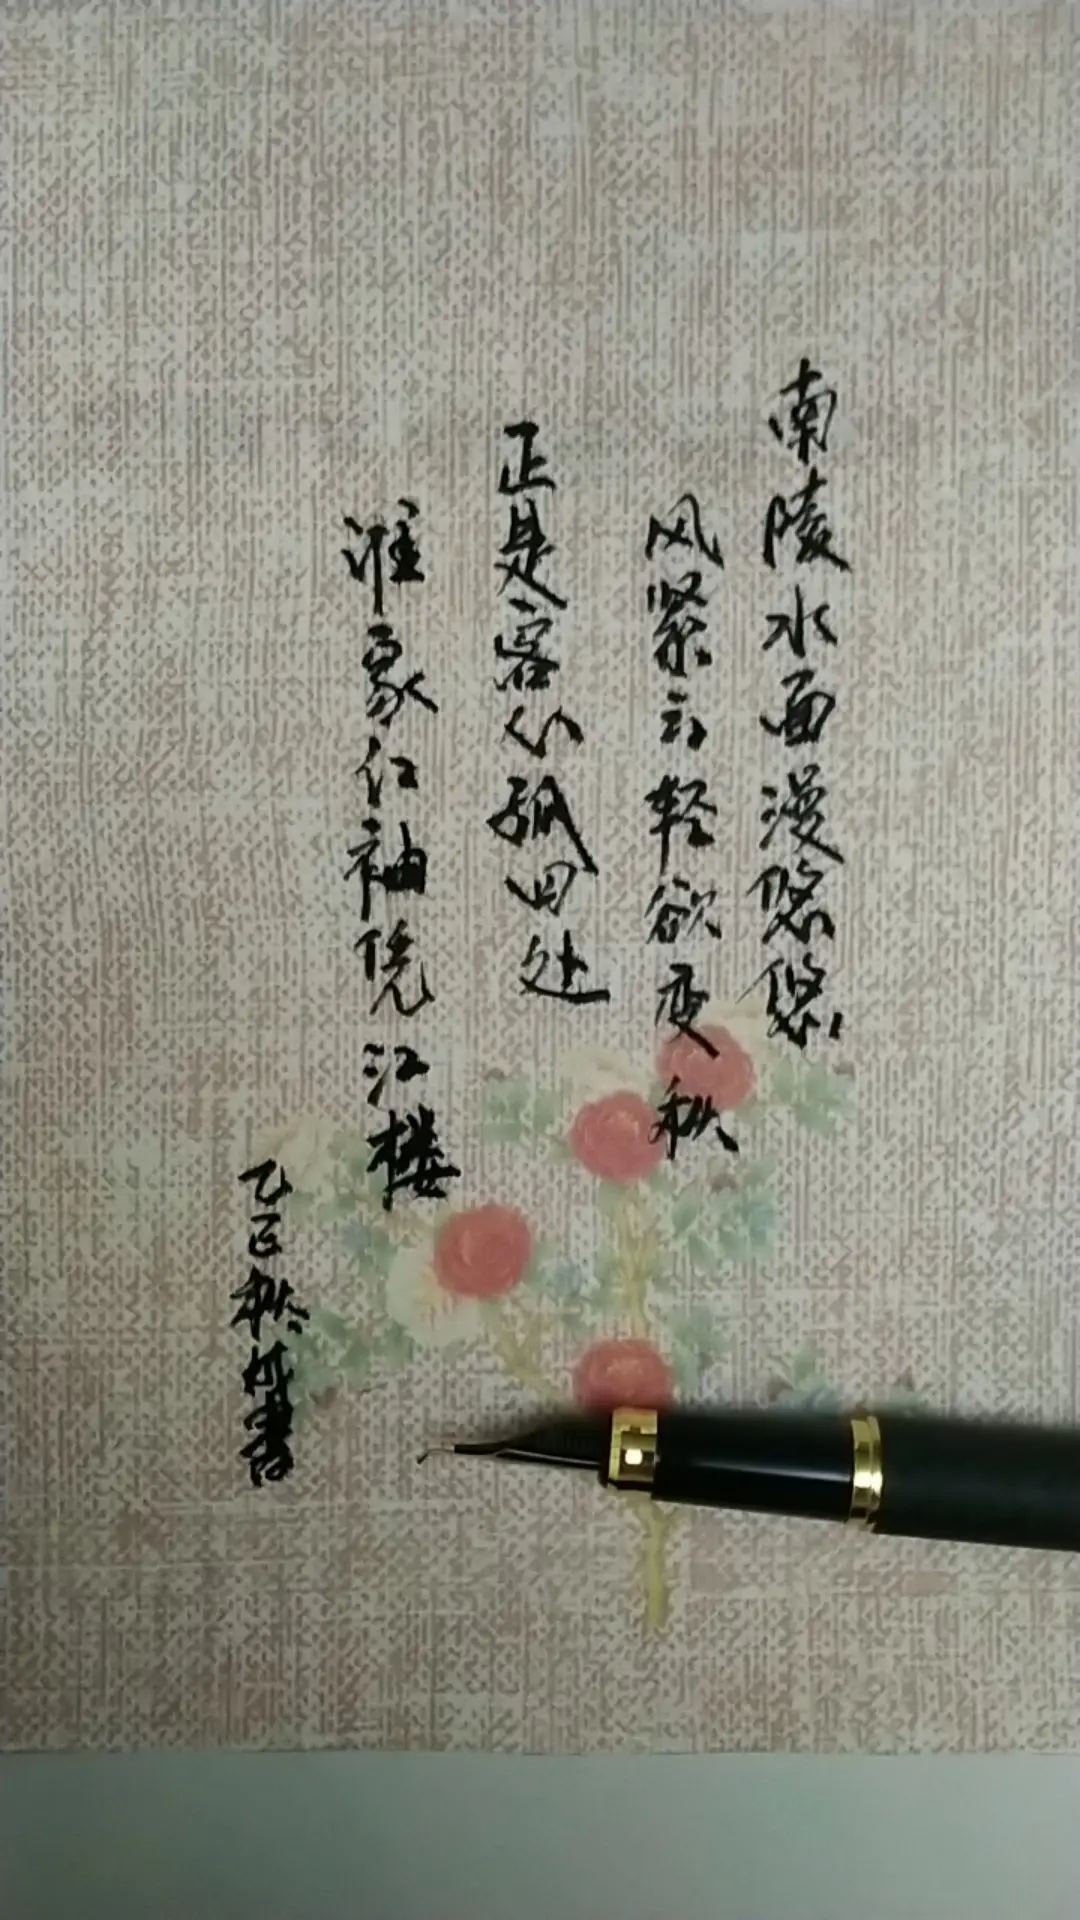 南陵水面漫悠悠
风紧云轻欲变秋
正是客心孤回处
谁家红袖凭江楼
乙巳秋